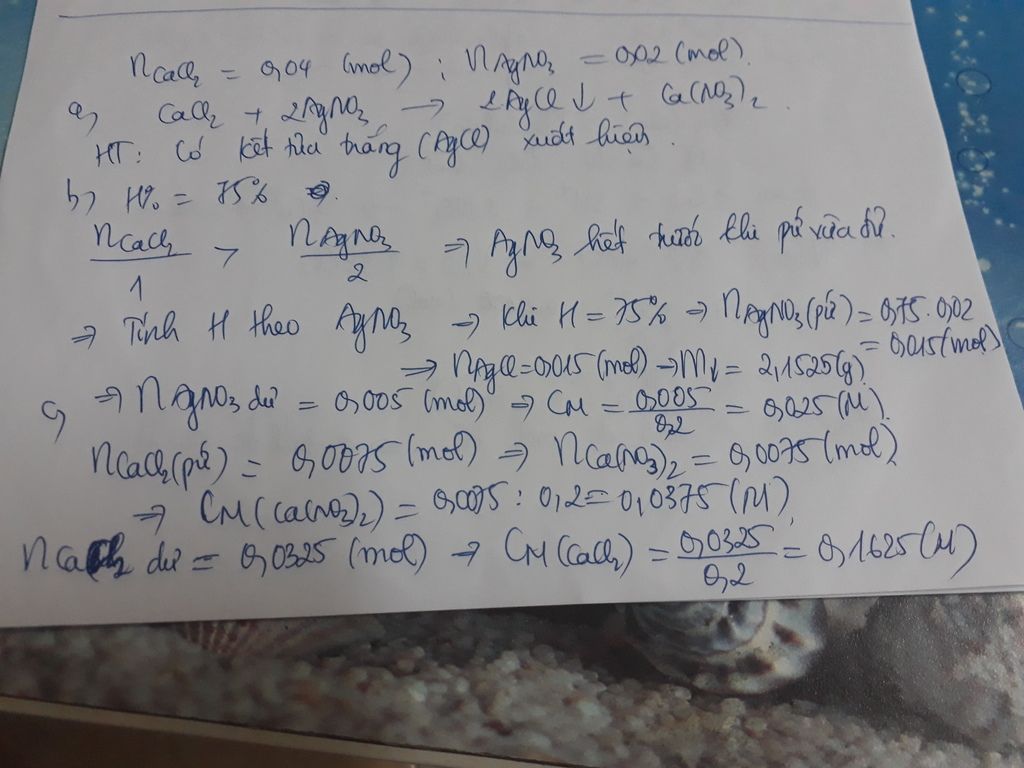 nCaCl₂ = 0,04 (mol) ; nAgNO₃ = 0,02 (mol).
a, CaCl₂ + 2AgNO₃ → 2AgCl ↓ + Ca(NO₃)₂.
HT: Có kết tủa trắng (AgCl) xuất hiện.
b, H% = 75%
nCaCl₂/1 > nAgNO₃/2 ⇒ AgNO₃ hết trước khi pứ vừa đủ.
⇒ Tính H theo AgNO₃ → Khi H = 75% ⇒ nAgNO₃(pứ) = 0,75.0,02
= 0,015 (mol)
⇒ nAgCl = 0,015 (mol) → m↓ = 2,1525(g)
c, ⇒ nAgNO₃ dư = 0,005 (mol) ⇒ CM = 0,005/0,2 = 0,025 (M).
nCaCl₂(pứ) = 0,0075 (mol) ⇒ nCa(NO₃)₂ = 0,0075 (mol)
⇒ CM(Ca(NO₃)₂) = 0,0075 : 0,2 = 0,0375 (M)
nCaCl₂ dư = 0,0325 (mol) → CM(CaCl₂) = 0,0325/0,2 = 0,1625 (M)